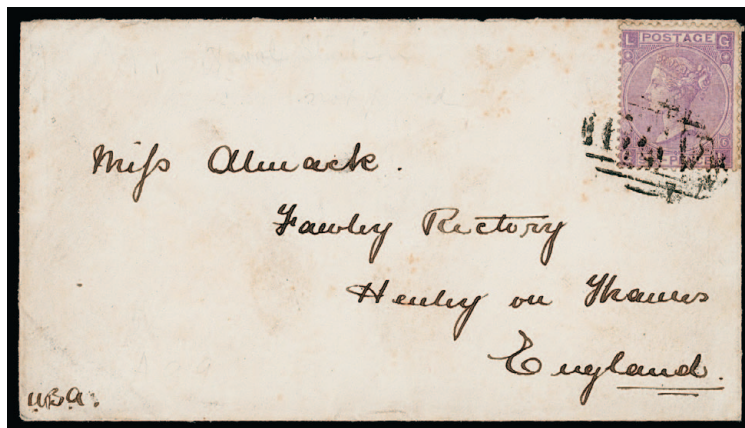 L POSTAGE G
Miss Almack.
Fawley Rectory
Henley on Thames
England.